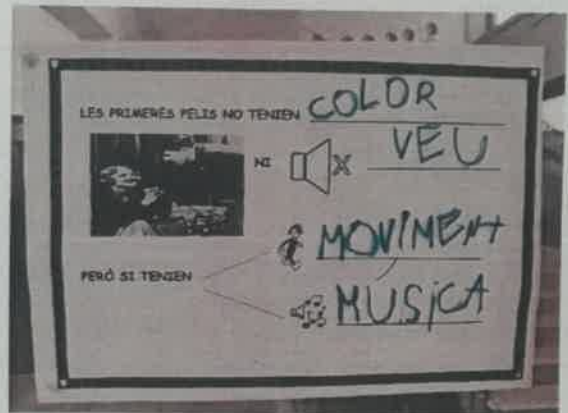 LES PRIMERES PELIS NO TENIEN COLOR
NI VEU
PERÒ SI TENIEN
MOVIMENT
MUSICA